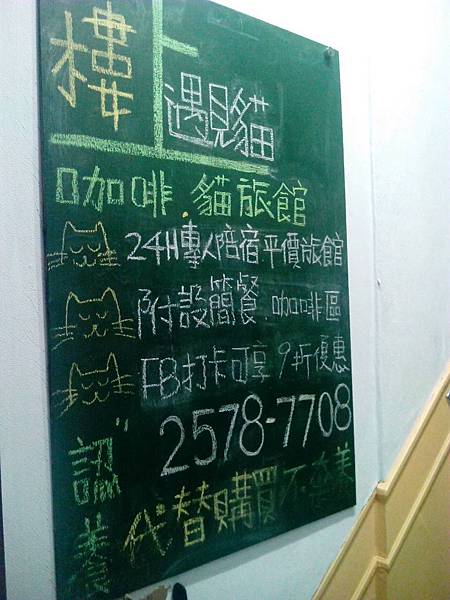 樓上
遇見貓
咖啡.貓旅館
24H專人陪宿平價旅館
附設簡餐.咖啡區
FB打卡可享9折優惠
2578-7708
認養"代替購買不棄養